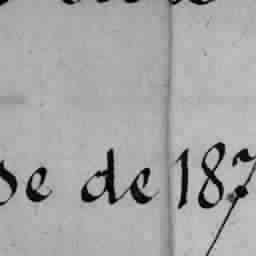 se de 187